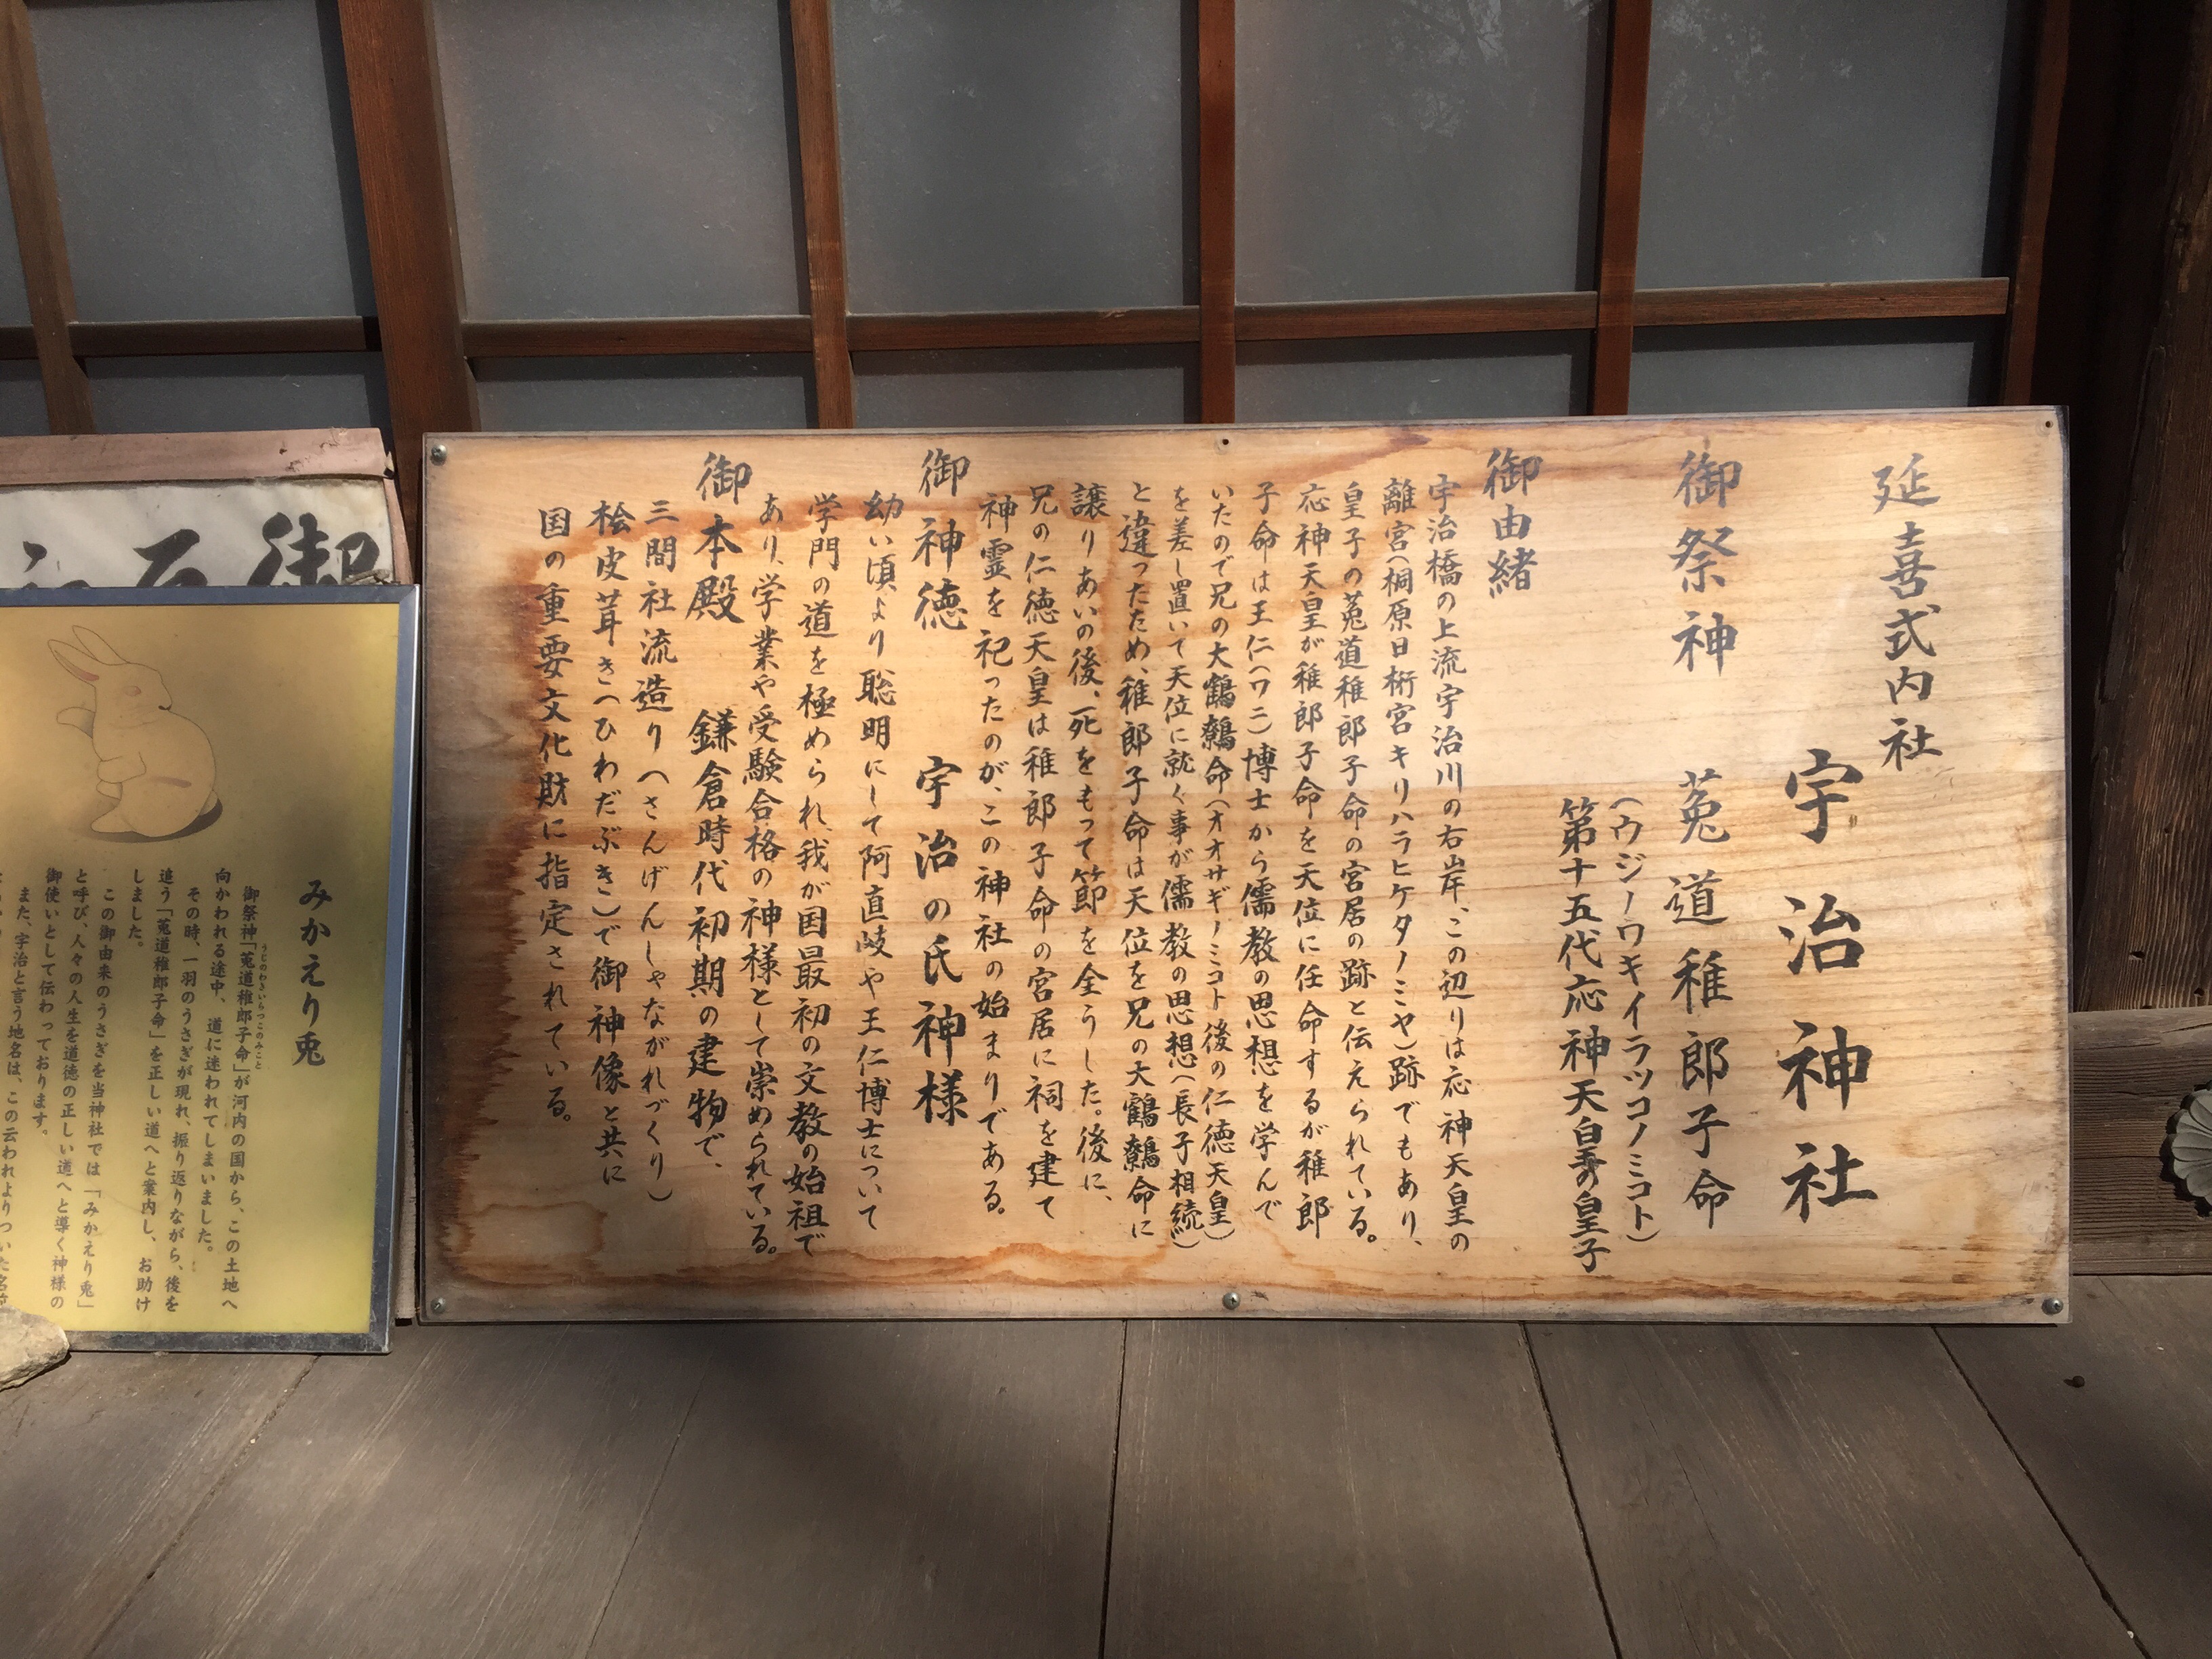 延喜式内社
宇治神社
御祭神 菟道稚郎子命
(ウジノワキイラツコノミコト)
第十五代応神天皇の皇子
御由緒
宇治橋の上流宇治川の右岸、この辺りは応神天皇の
離宮(桐原日桁宮キリハラヒケタノミヤ)跡でもあり、
皇子の菟道稚郎子命の宮居の跡と伝えられている。
応神天皇が稚郎子命を天位に任命するが稚郎
子命は王仁(ワニ)博士から儒教の思想を学んで
いたので兄の大鷦鷯命(オオサギノミコト後の仁徳天皇)
を差し置いて天位に就く事が儒教の思想(長子相続)
と違ったため、稚郎子命は天位を兄の大鷦鷯命に
譲りあいの後、死をもって節を全うした。後に、
兄の仁徳天皇は稚郎子命の宮居に祠を建て
神霊を祀ったのが、この神社の始まりである。
御神徳 宇治の氏神様
幼い頃より聡明にして阿直岐や王仁博士について
学門の道を極められ、我が国最初の文教の始祖で
あり、学業や受験合格の神様として崇められている。
御本殿 鎌倉時代初期の建物で、
三間社流造り(さんげんしゃながれづくり)
桧皮茸き(ひわだぶき)で御神像と共に
国の重要文化財に指定されている。
みかえり兎
御祭神「菟道稚郎子命」が河内の国から、この土地へ
うじのわきいらつこのみこと
向かわれる途中、道に迷われてしまいました。
その時、一羽のうさぎが現れ、振り返りながら、後を
追う「菟道稚郎子命」を正しい道へと案内し、お助け
しました。
この御由来のうさぎを当神社では「みかえり兎」
と呼び、人々の人生を道徳の正しい道へと導く神様の
御使いとして伝わっております。
また、宇治と言う地名は、この云われよりついた名